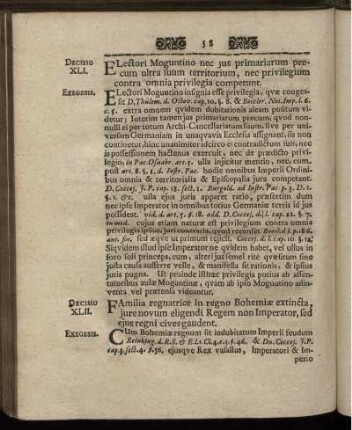 58
DECISIO XLI.
ELectori Moguntino nec jus primariarum pre-
cum ultra suum territorium, nec privilegium
contra omnia privilegia competunt.
EXEGESIS.
ELectori Moguntino insignia esse privilegia, quæ conges-
sit D. Thulem. d. Octov. cap. 10. §. 8. & Boecler. Not. Imp. l. 6.
c. 5. extra omnem qvidem dubitationis aleam positum vi-
detur; Interim tamen jus primariarum precum, qvod non-
nulli ei per totum Archi-Cancellariatum suum, sive per uni-
versum Germaniam in unaqvavis Ecclesia assignant, iis non
continetur, hinc unanimiter idcirco ei contradictum fuit, nec
is possessionem hactenus exercuit, nec de prædicto privi-
legio, in Pac. Osnabr. art. 5. ulla injicitur mentio, nec, cum,
post art. 8. §. 1. d. Instr. Pac. hodie omnibus Imperii Ordini-
bus omnia & territorialia & Episcopalia jura competant.
D. Coccej. J. P. cap. 18. sect. 1. Burgold. ad Instr. Pac. p. 3. D. 1.
§. 1. &c. ulla ejus juris apparet ratio, præsertim dum
nec ipse Imperator in omnibus totius Germaniæ terris id jus
possideat. vid. d. art. 5. §. 18. add. D. Coccej. d. l. cap. 22. §. 7.
cujus etiam naturæ est Privilegium contra omnia
privilegia ipsum
sed neqve ut primum rejicit. Coccej. d. l. cap. 10. §. 14.
Siqvidem illud ipse Imperator ne qvidem habet, vel ullus in
foro soli princeps, cum, alteri jus semel ritè qvæsitum sine
justa causa aufferre velle, & manifesta sit rationis, & ipsius
juris pugna. Ut proinde isthæc privilegia potius ab assen-
tatoribus aulæ Moguntinæ, quàm ab ipso Moguntino adin-
venta vel prætensa videantur.
DECISIO XLII.
FAmilia regnatrice in regno Bohemiæ extincta,
jure novum eligendi Regem non Imperator, sed
ejus regni cives gaudent.
EXEGESIS.
CUm Bohemiæ regnum sit indubitatum Imperii feudum
Reinking. d. R. S. & E. l. 1. Cl. 4. c. 5. §. 46. & Dn. Coccej. J. P.
cap. 4. sect. 4. §. 56, ejusqve Rex vasallus, Imperatori & Im-
perio